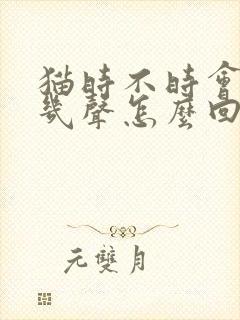 猫時不時會
幾聲怎麼回
元雙月